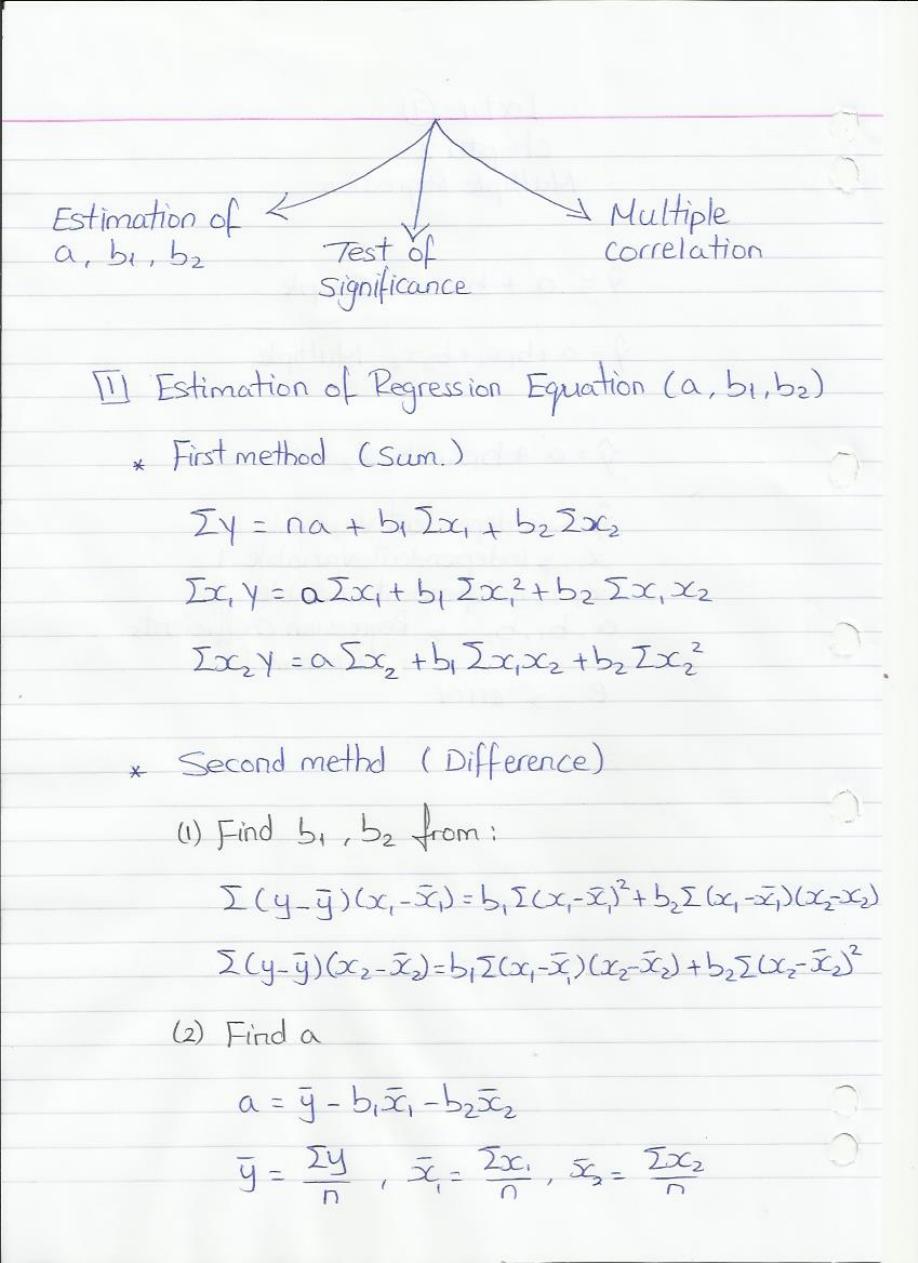 Estimation of
a, b₁, b₂
Test of
Significance
Multiple
Correlation
[1] Estimation of Regression Equation (a, b₁, b₂)
* First method (Sum.)
Σy = na + b₁ Σx₁ + b₂ Σx₂
Σx₁y = a Σx₁ + b₁ Σx₁² + b₂ Σx₁x₂
Σx₂y = a Σx₂ + b₁ Σx₁x₂ + b₂ Σx₂²
* Second methd (Difference)
(1) Find b₁, b₂ from:
Σ(y-ȳ)(x₁-x̄₁) = b₁Σ(x₁-x̄₁)² + b₂Σ(x₁-x̄₁)(x₂-x₂)
Σ(y-ȳ)(x₂-x̄₂) = b₁Σ(x₁-x̄₁)(x₂-x̄₂) + b₂Σ(x₂-x̄₂)²
(2) Find a
a = ȳ - b₁x̄₁ - b₂x̄₂
ȳ = Σy/n, x̄₁ = Σx₁/n, x̄₂ = Σx₂/n